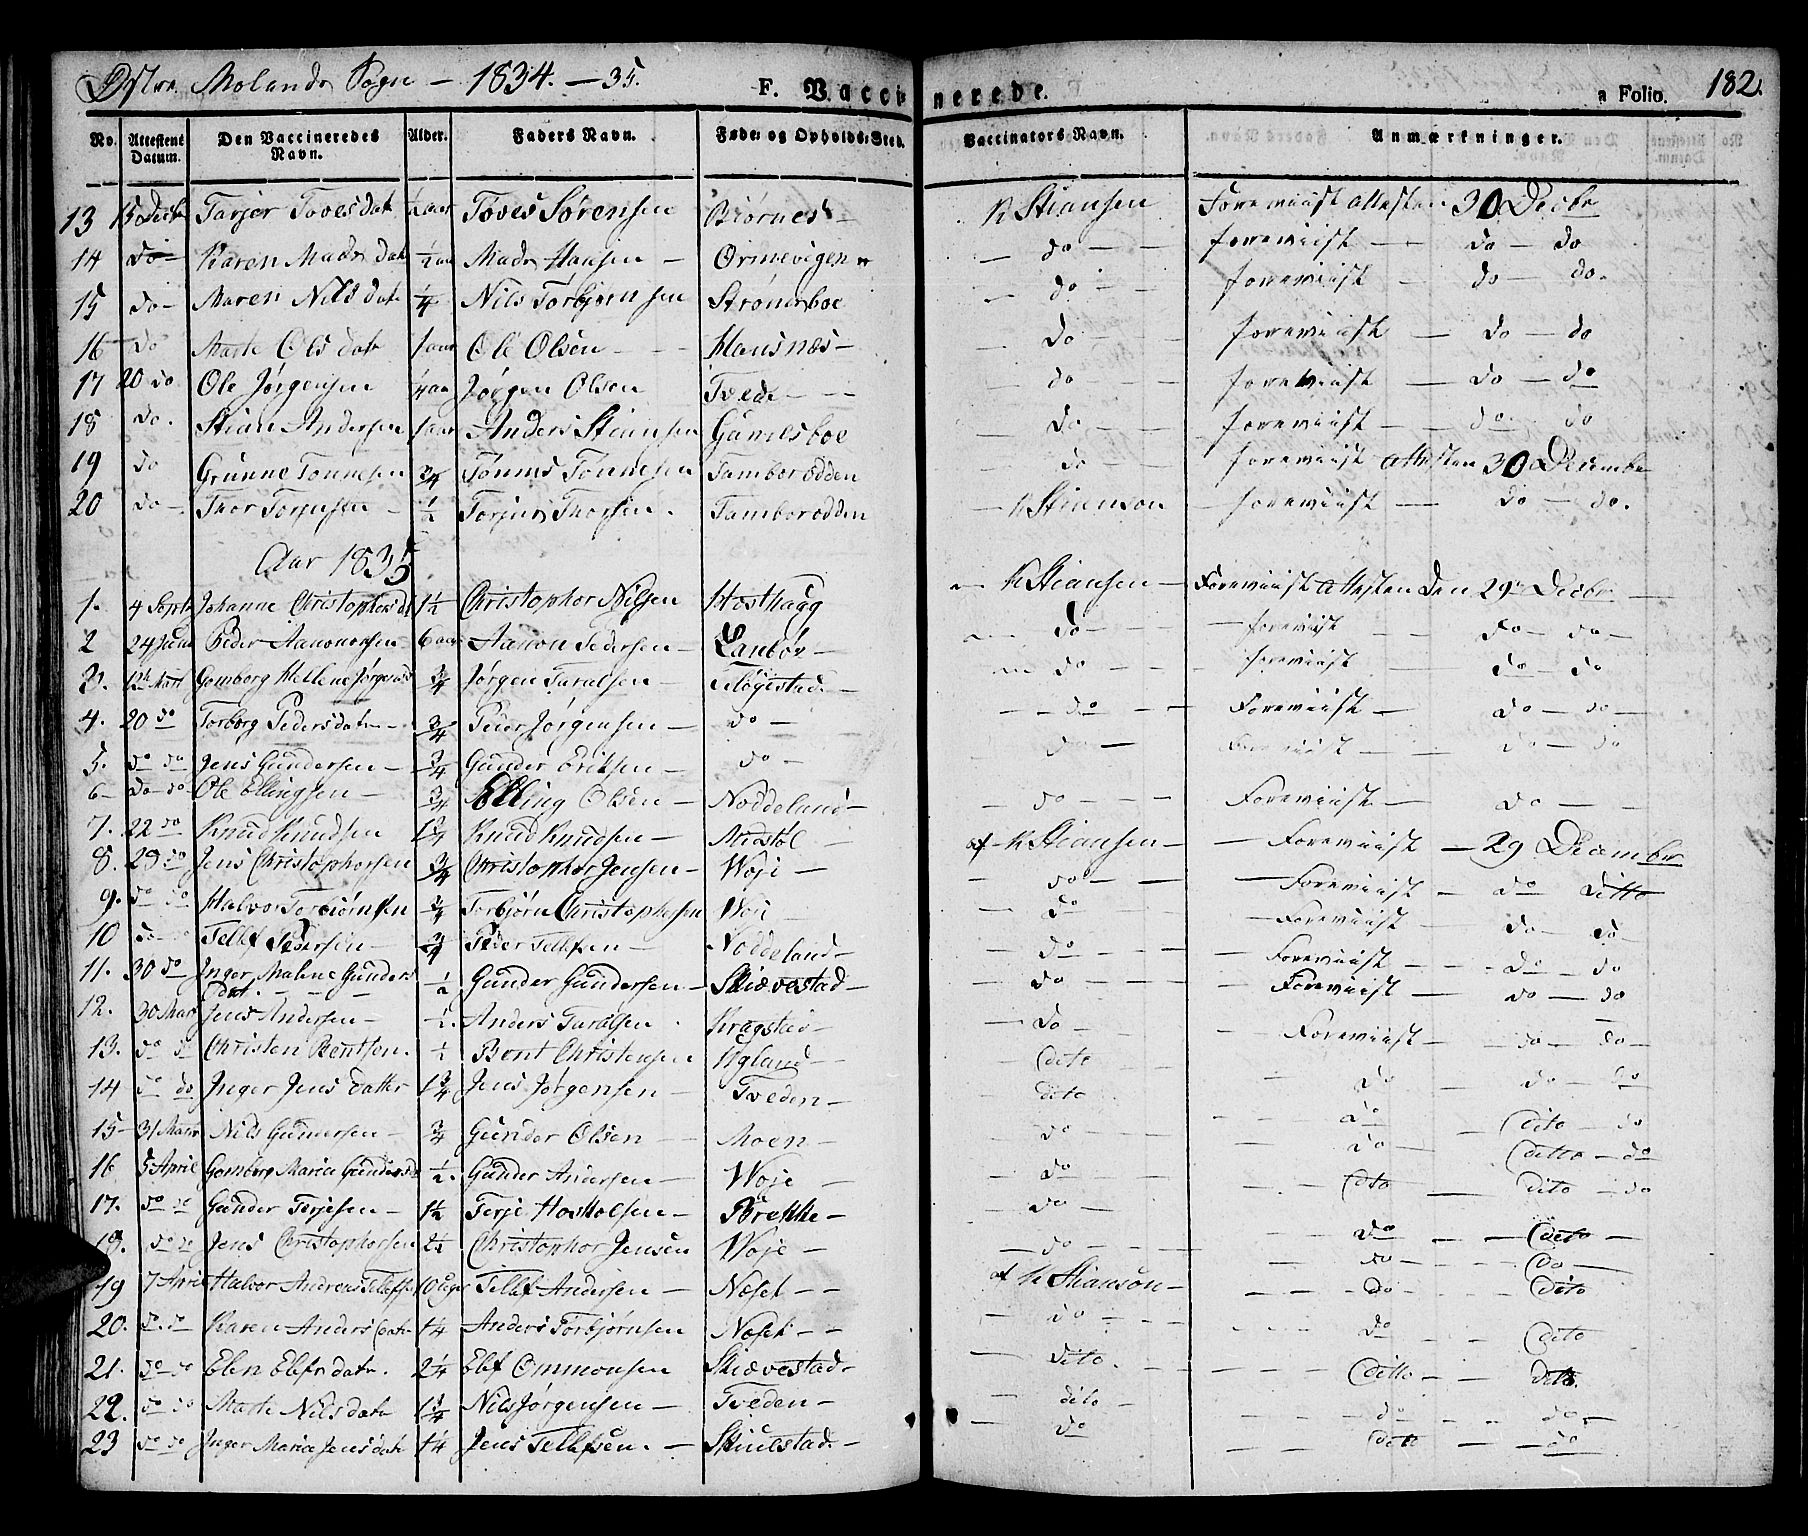 Østre Molands Sogn — 1834. — 35. F. Vaccinerede. a Folio. 182.
No. Attestens Datum. Den Vaccineredes Navn. Alder. Faders Navn. Føde- og Opholds-Sted. Vaccinators Navn. Anmærkninger.
13 15 Decbr Tarjer Tovesdat ½ aar Toves Sørensen Biørnes — K Stiansen Foreviist Attesten 30 Decbr
14 do — Karen Mads dat ½ aar Mads Hansen — Ormevigen — do — — foreviist — — do — do
15 do — Maren Nils dat ¼ Nils Torbjørnsen Strømsboe — do — — foreviist — do — do.
16 do Marte Ols datr 1 aar Ole Olsen — — Hausnæs — — do — — foreviist — do — do
17 20 do Ole Jørgensen ¼ aar Jørgen Olsen Tvede — — do — — foreviist — do — do
18 do. Stian Andersen 1 aar Anders Stiansen Gamelsboe — do — — foreviist — do — do
19 do Grunne Tønnesen ¾ Tønnis Tønnesen Tamberodden — do — — foreviist Attesten 30 December
20 do — Thor Torjusen — ½ Torjus Thorsen. Tamborodden — K Stianson — foreviist — do — do.
Aar 1835
1. 4 Septr Johanne Christophersdt 1½ Christopher Nilsen Hosthagg — K Stiansen — Foreviist Attesten den 29de Decbr —
2 24 Juni Peder Aanonsen — 6 aar Aanon Pedersen — Lanbør — — do — — — foreviist — do — do —
3. 12te Mart Gomborg Hellene Jørgensd ¾ Jørgen Taralsen — Fløgestad — — do — — — foreviist — do — do
4. 20 do Torborg Pedersdatr — ¾ Peder Jørgensen — do — — — do — — Foreviist — do — do —
5. do do Jens Gundersen — ¾ Gunder Eriksen — do — do — Foreviist — do — do
6 — do — do Ole Ellingsen — ¾ Elling Olsen — Noddeland — — do — — — Foreviist — do — —
7. 22 do Knud Knudsen 1¾ Knud Knudsen — Midstøl — af K Stiansen — — Foreviist — 29 December
8. 29 do Jens Christophersen ¾ Christopher Jensen — Woje — do — — — Foreviist — do ditto
9. do do Halvor Torbiørnsen ¾ Torbjørn Christophersen Woie — — do — Foreviist do — do —
10 do — do Tellef Pedersen — ¾ Peder Tellefsen — Noddeland — — do — — — Foreviist — — do — do
11. 30 do Inger Malene Gunders datr. — — ½ Gunder Gundersen — Skiævestad — — do — — — Foreviist — — do — do
12. 30 Mar Jens Andersen — ½. Anders Taralsen. Kragstad — — do — — Foreviist — do — do —
13. do do Christen Bentsen. ½ Bent Christensen Ugland — — dito — do — — do — do
14 do do Inger Jens datter 1¾ Jens Jørgensen — Tveden — — dito — do — — dito — do
15 — 31 Marts Nils Gundersen — ¾ Gunder Olsen — Moen — do — — — do — — dito — do
16 5 April Gomborg Maria Gundersdt ½. Gunder Andersen — Woje — — do — — dito — dito — do
17. do do Gunder Terjesen — 1½ Terje Hoskolsen — Brekke — — do — — do — — dito
18. do do Jens Christophersen 2½ Christopher Jensen Woje — — do — — do — — do —
19 7 April Halvor Andreas Tellefsen 10 Uger Tellef Andersen — Næset — — af K Stianson — — — do — — dito
20. do. do Karen Anders datr 1¼ Anders Torbjørnsen Næset — — — do — — — — do — — dito
21. do — do Elen Elefs datr. 2¼ Elef Ommonsen Skiævestad — — dito. — — — ditto — — dito.
22. do do Marte Nils datr 1¾ Nils Jørgensen — Tveden — — dito — — — — do — — do —
23 do do Inger Maria Jensdatr 1¼ Jens Tellefsen. — Skiulstad — — do — — — dito — — do